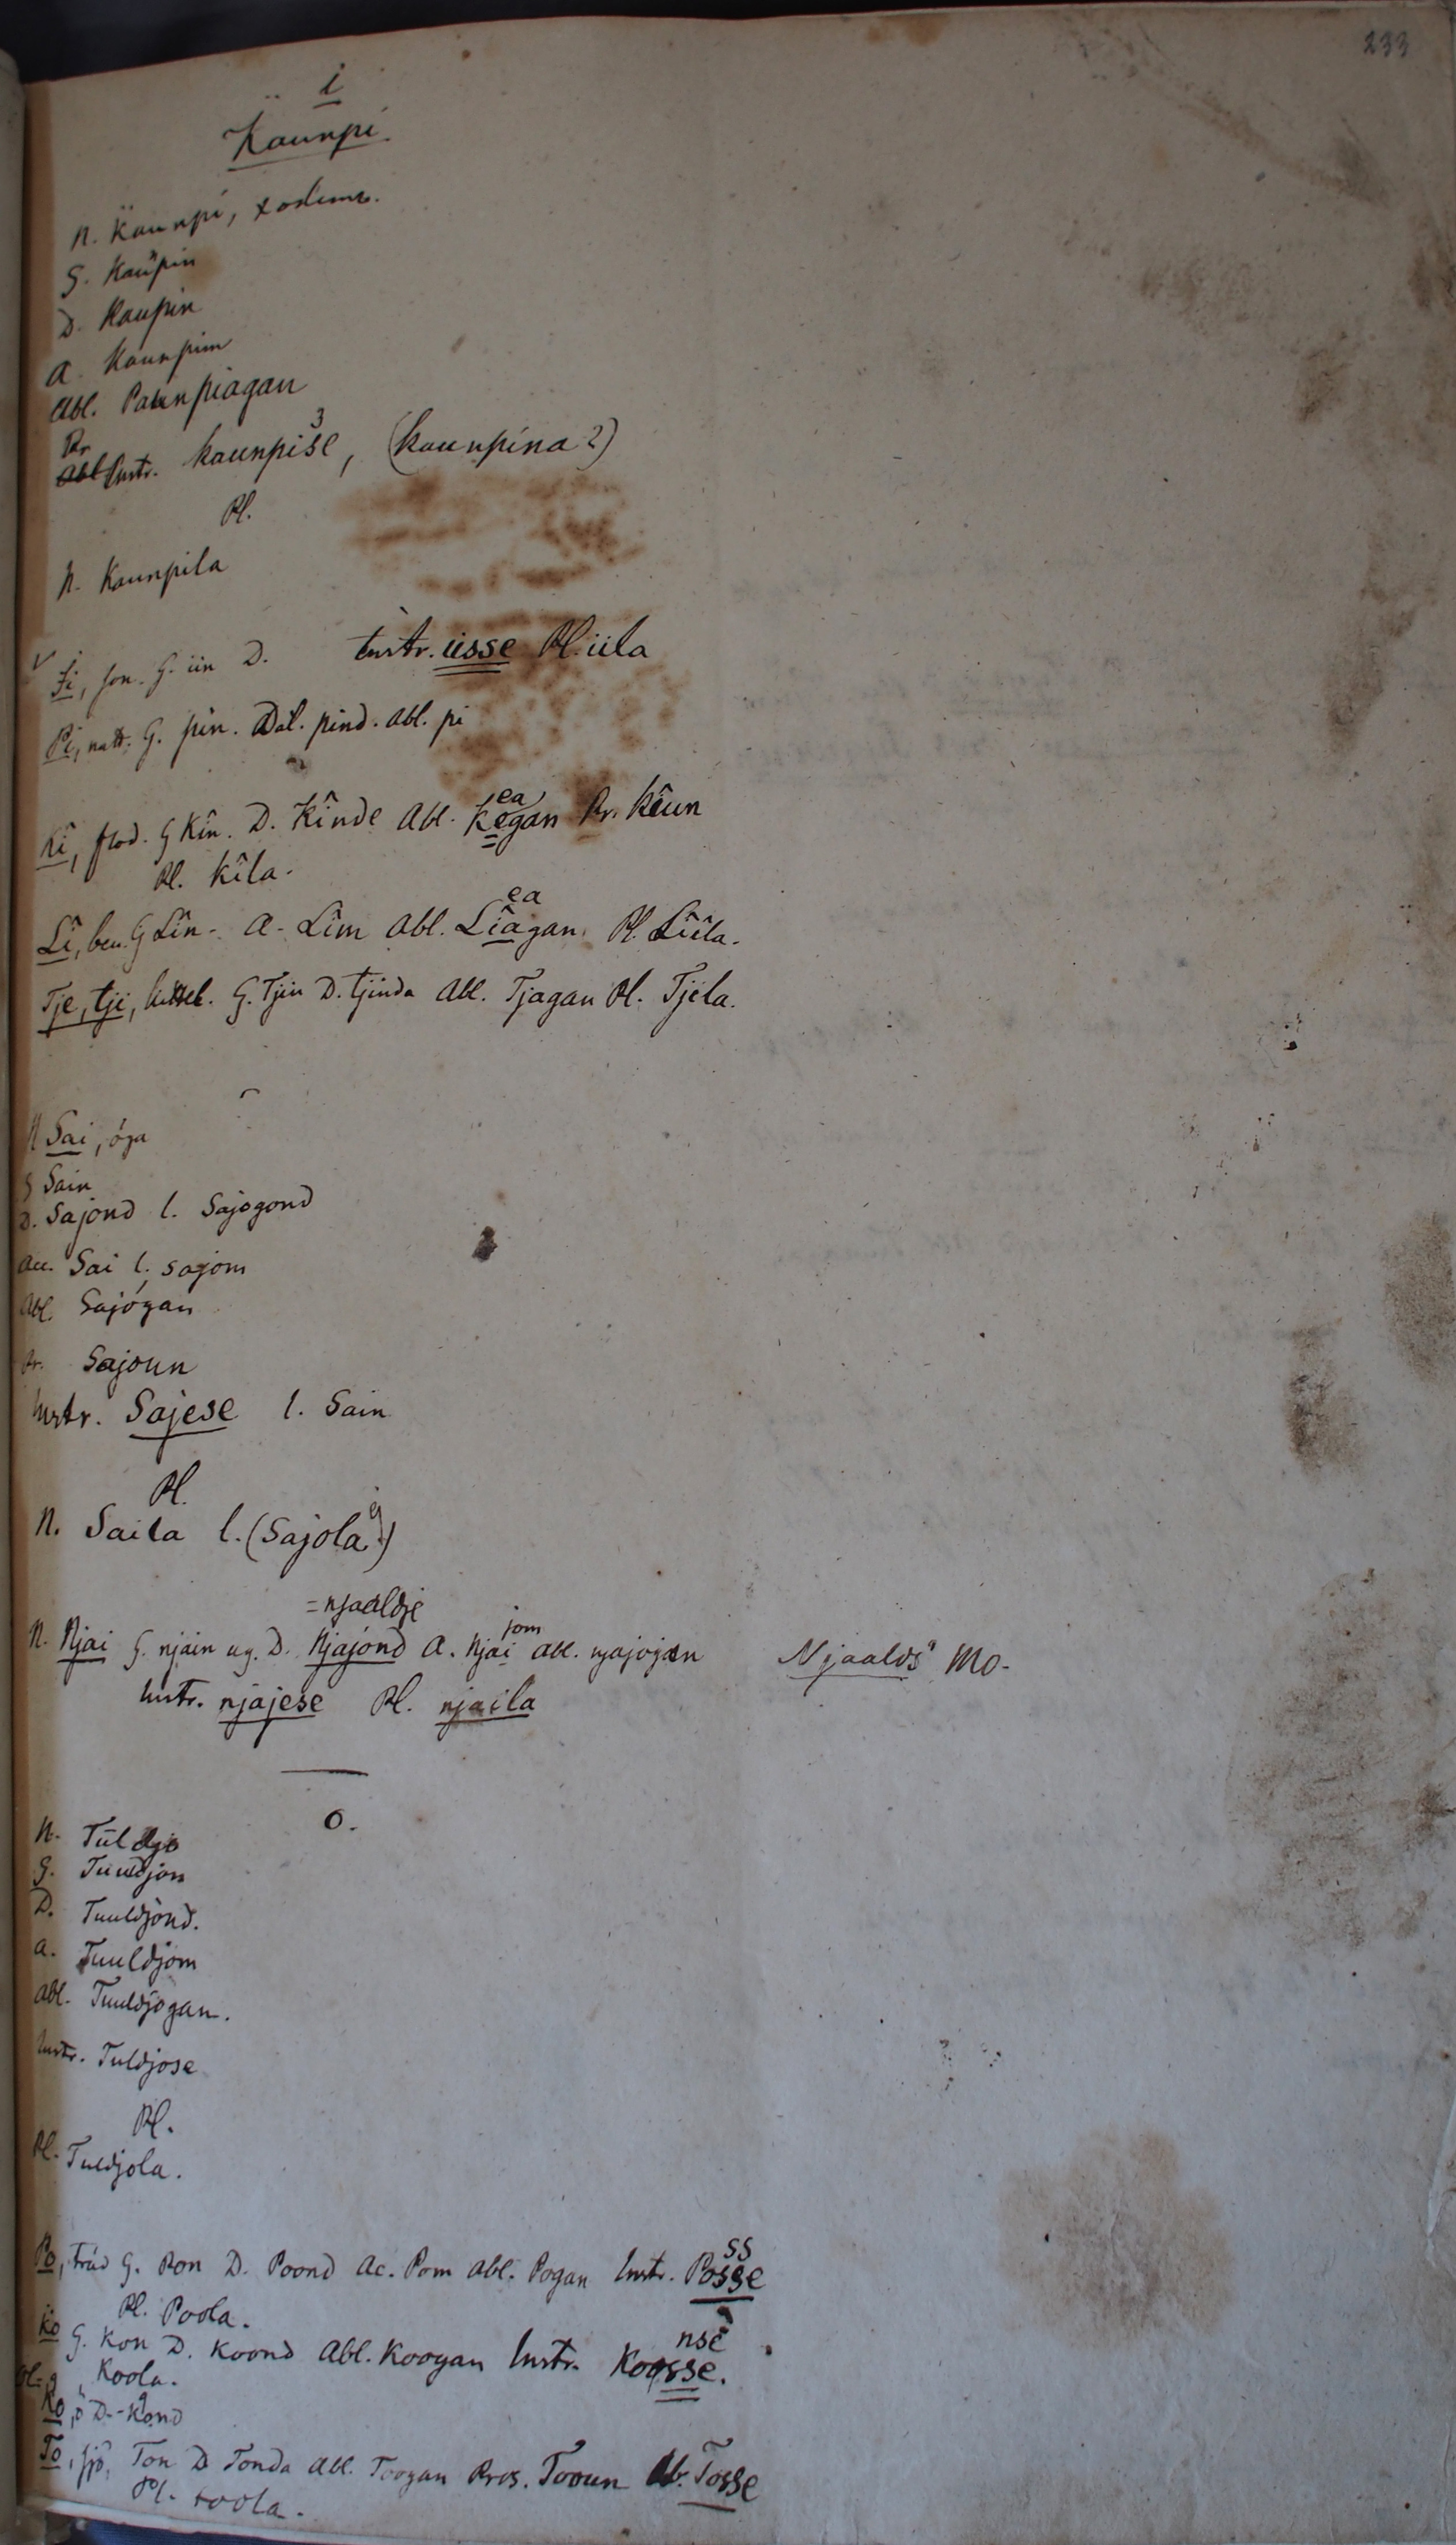 233
i
Kaunpi
N. Kaunpi,
G. Kaupin
D. Kaupin
A. Kaunpim
Abl. Paunpiagan
Pr
Instr. kaunpiśe, (kaunpina?)
Pl.
N. Kaunpila
Ii, son. G. iin D. Instr. iisse Pl. iila
Pi, natt. G. pin. Dat. pind. Abl. pi
ea
Kî, flod. G Kîn. D. Kînde Abl. Kegan Pr. Kîun
Pl. Kîla.
ea
Lî, ben. G Lîn. A. Lîm Abl. Lîagan Pl. Lîila.
Tje, tji, kittel. G. Tjin D. tjinda Abl. Tjagan Pl. Tjela.
N Sai, öga
G Sain
D. Sajond l. Sajogond
Acc. Sai l. sajom
Abl. Sajógan
Pr. Sajoun
Instr. Sajese l. Sain
Pl.
N. Saila l. (Sajola)
=njaaldje
jom
N. Njai G. njain ug. D. Njajond A. Njai Abl. njajogan Njaalds Mo.
Instr. njajese Pl. njaila
O.
N. Tüldjo
G. Tuuldjon
D. Tuuldjond.
A. Tuuldjom
Abl. Tuuldjogan.
Instr. Tuldjose
Pl.
Pl. Tuldjola.
ss
Po, träd G. Pon D. Poond Ac. Pom Abl. Pogan Instr. Posse
Pl. Poola.
nse
Ko G. Kon D. Koond Abl. Koogan Instr. Koosse.
Koola.
Ko, ö D. Kond
To, sjö, Ton D Tonda Abl. Toogan Pros. Tooun Tosse
Pl. toola.